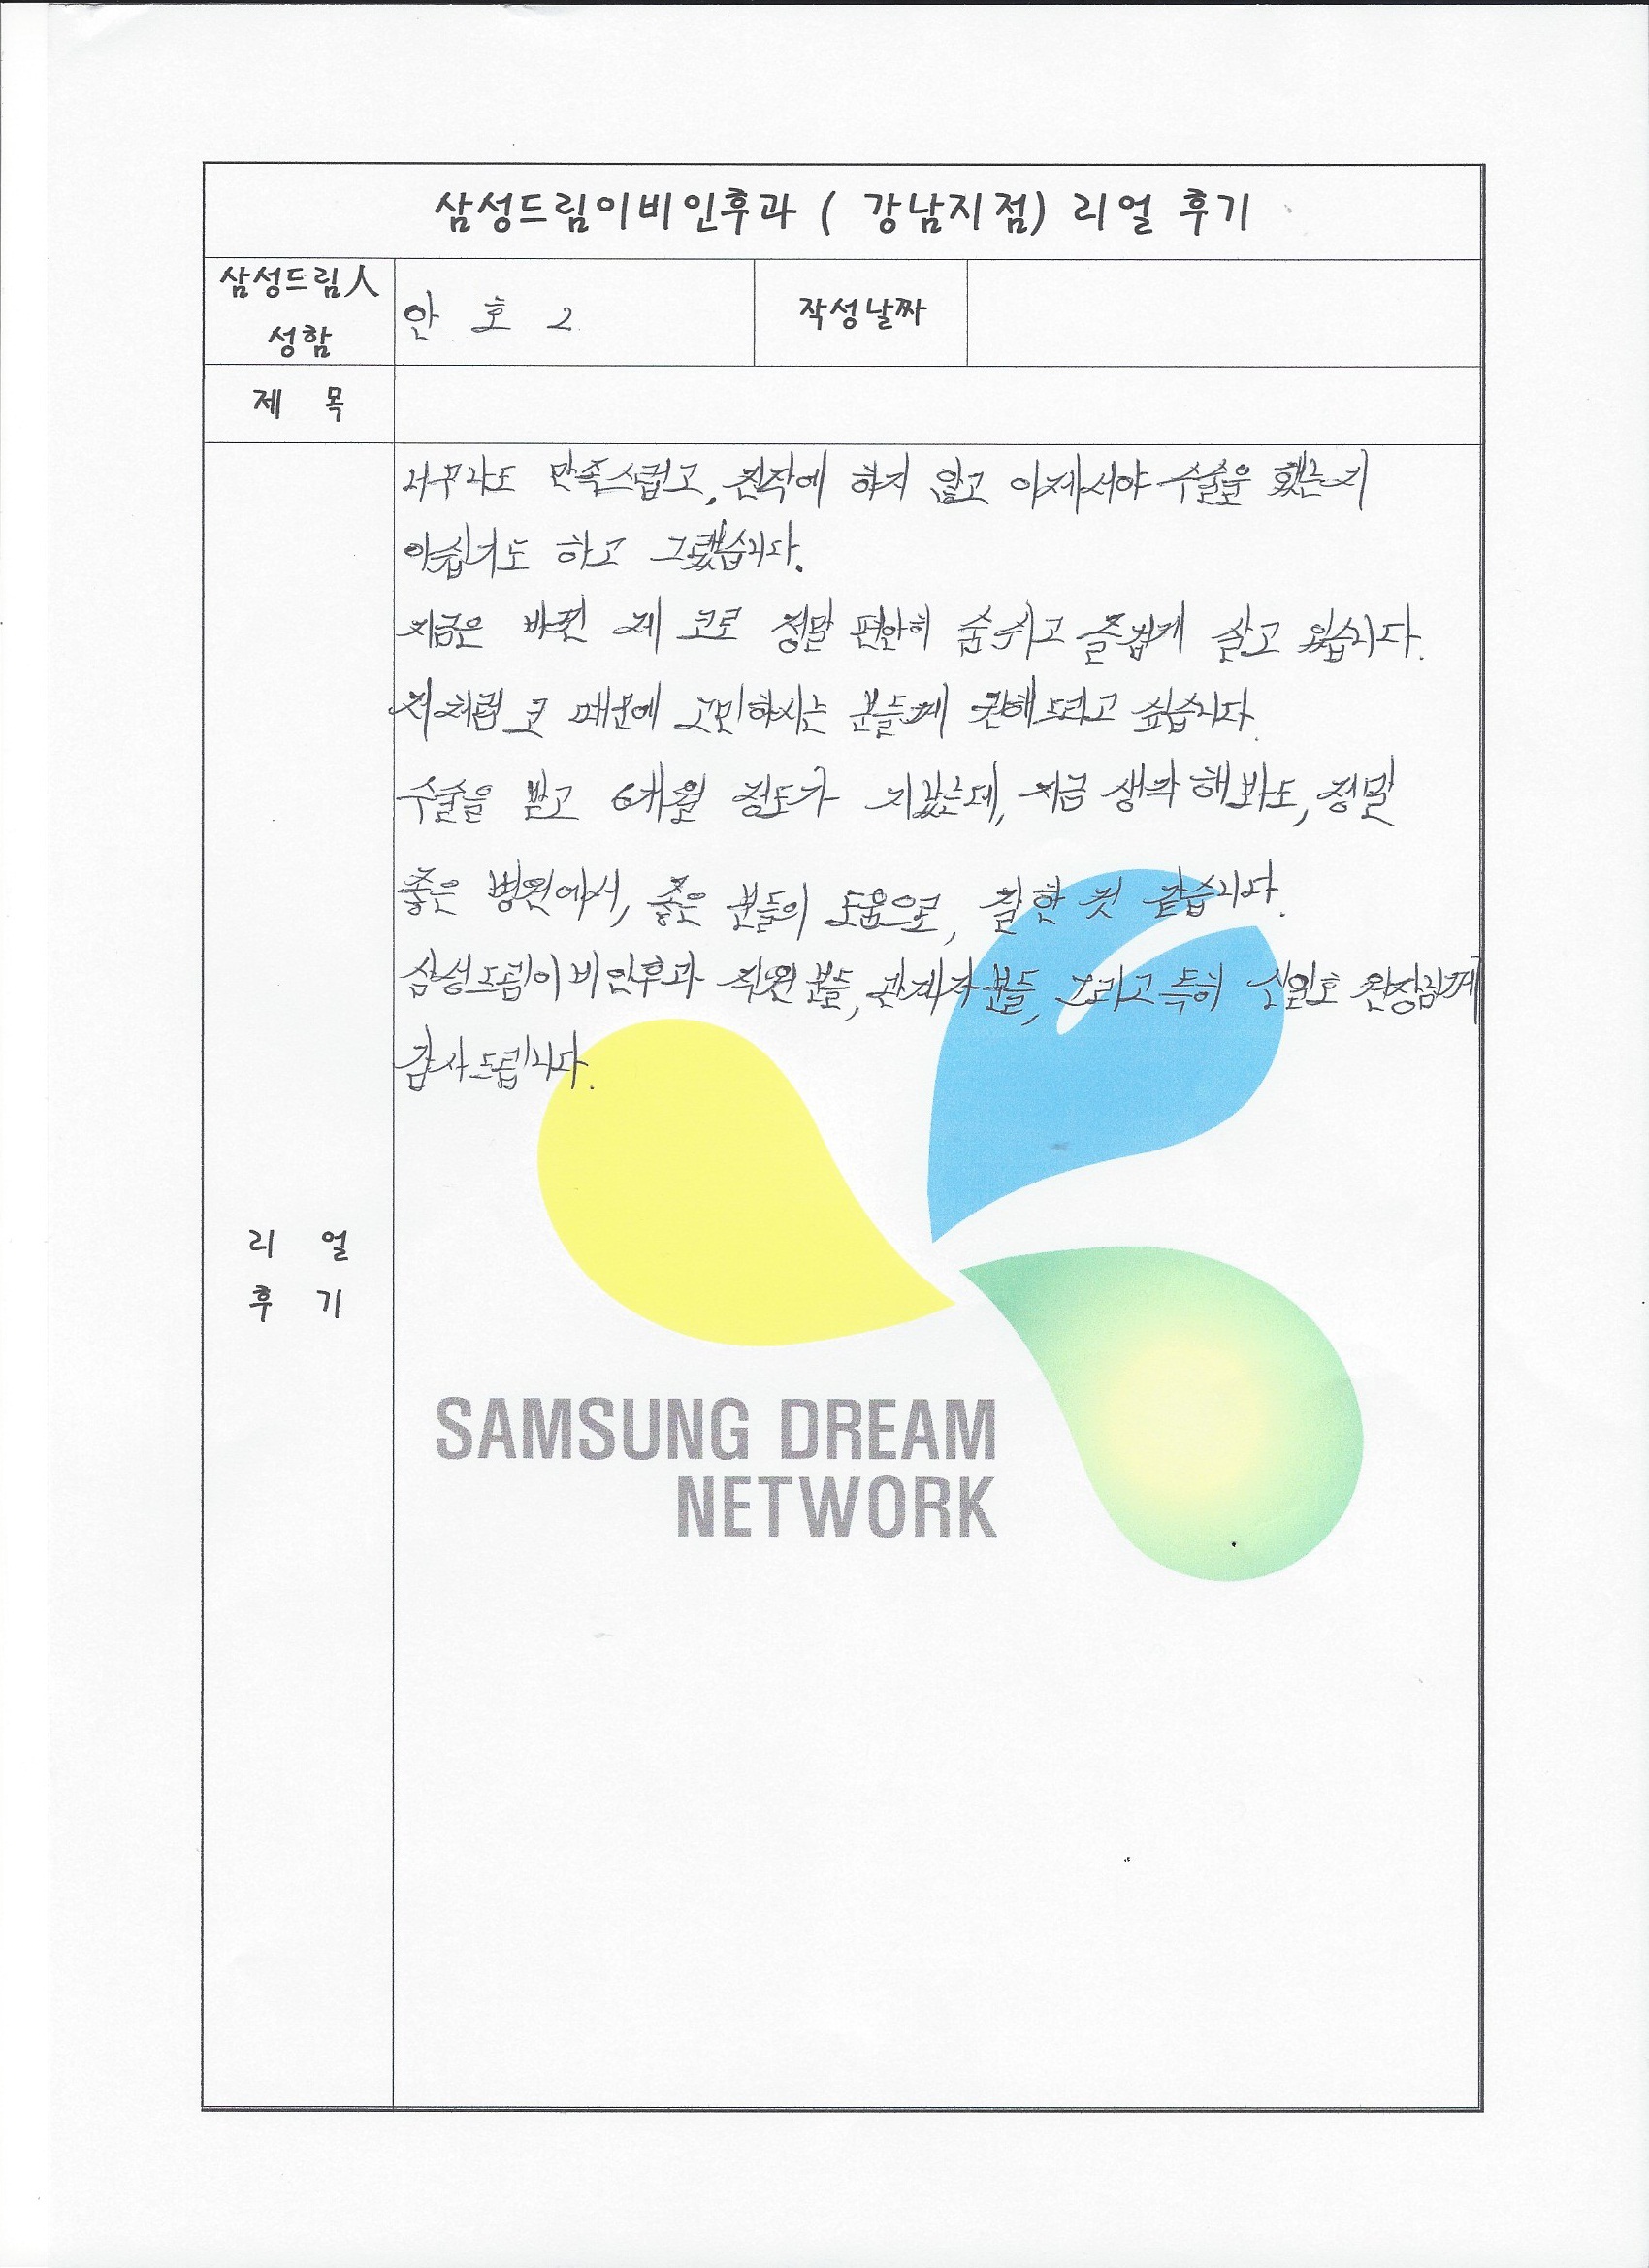 삼성드림이비인후과 ( 강남지점) 리얼 후기
삼성드림人
성함
안 호 2
작성날짜
제 목
너무나도 만족스럽고, 진작에 하지 않고 이제서야 수술을 했는지
아쉽기도 하고 그랬습니다.
지금은 바뀐 제 코로 정말 편안히 숨쉬고 즐겁게 살고 있습니다.
저처럼 코 때문에 고민하시는 분들께 권해드리고 싶습니다.
수술을 받고 6개월 정도가 지났는데, 지금 생각해봐도, 정말
좋은 병원에서, 좋은 분들의 도움으로, 잘한 것 같습니다.
삼성드림이비인후과 직원분들, 관계자분들, 그리고 특히 신일호 원장님께
감사드립니다.
리 얼
후 기
SAMSUNG DREAM
NETWORK